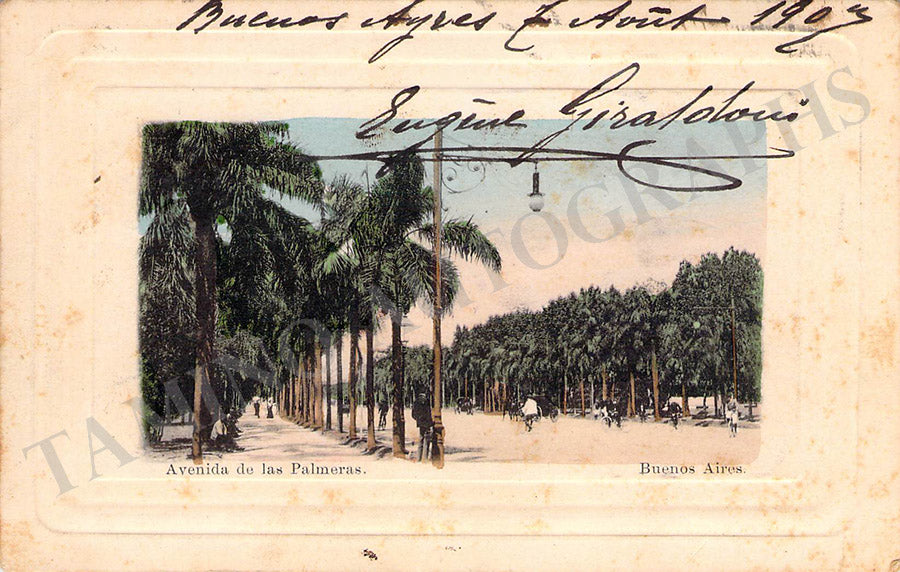 Buenos Ayres 7 Août 1903
Eugène Giraldoni
TAMINO AUTOGRAPHS
Avenida de las Palmeras.
Buenos Aires.